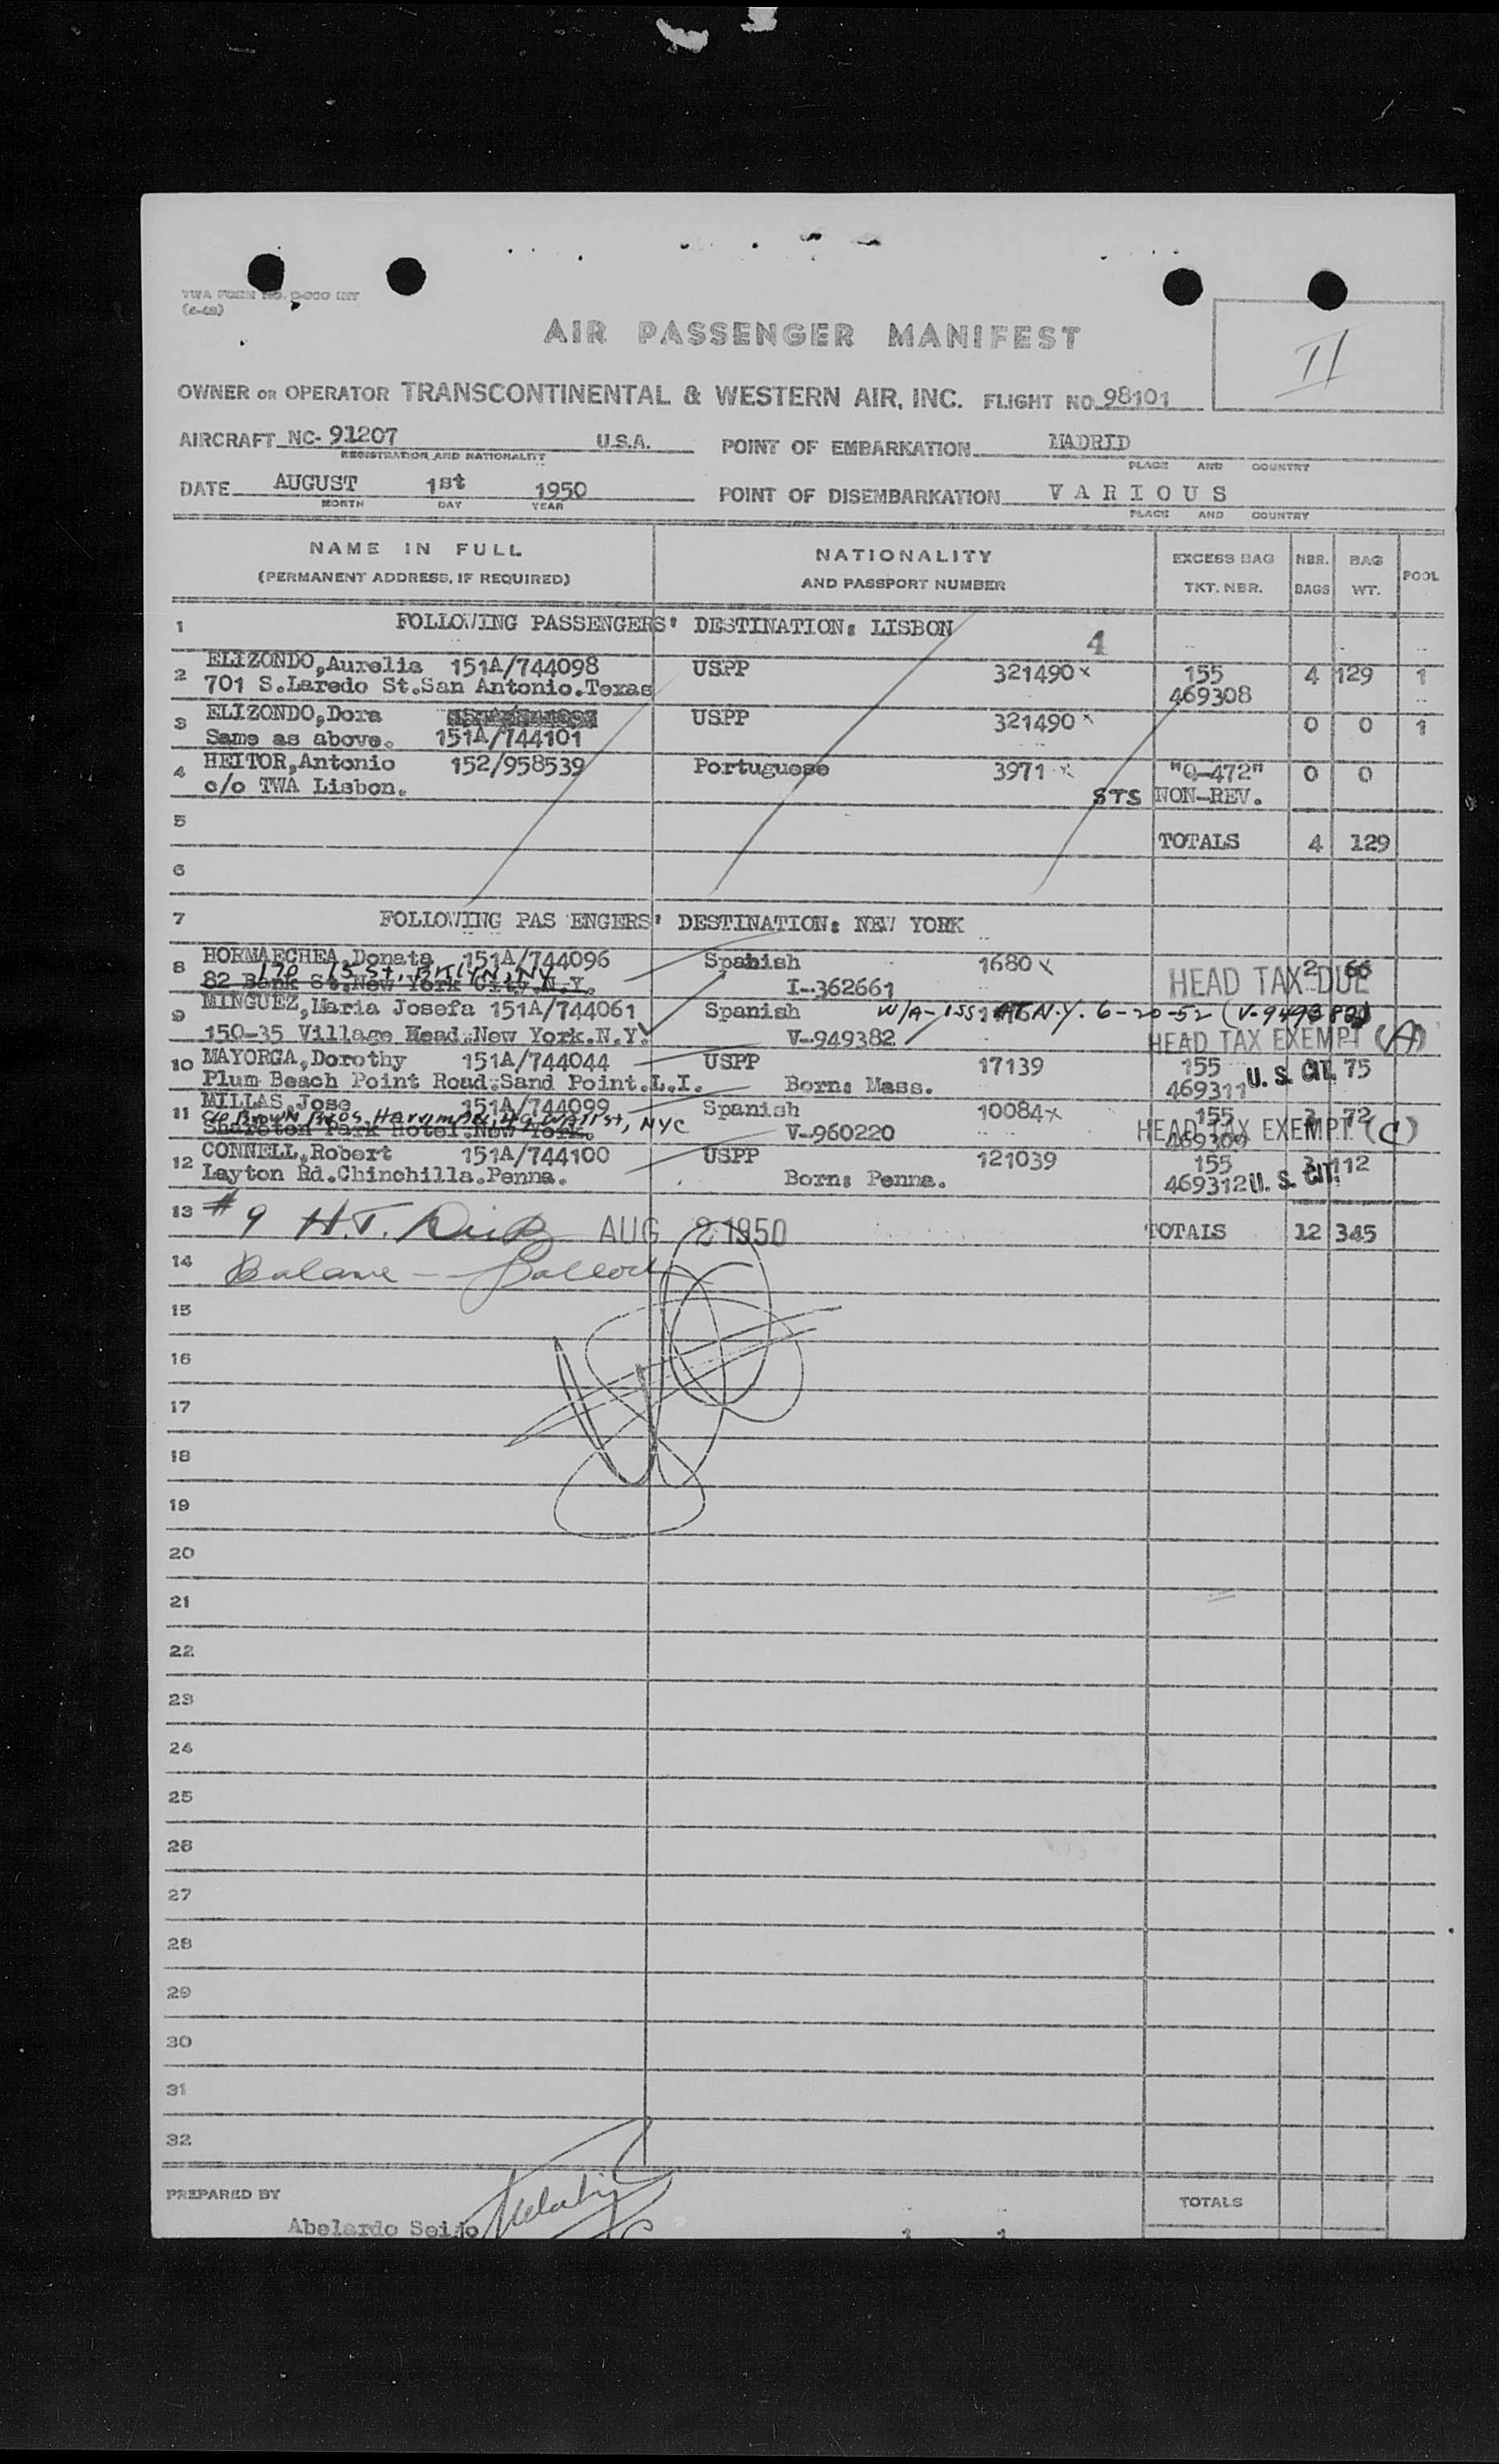 TWA FORM NO. INT
(4-48)
AIR PASSENGER MANIFEST
II
OWNER OR OPERATOR TRANSCONTINENTAL & WESTERN AIR, INC. FLIGHT NO. 98101
AIRCRAFT NC- 91207 U.S.A. POINT OF EMBARKATION MADRID
REGISTRATION AND NATIONALITY PLACE AND COUNTRY
DATE AUGUST 1st 1950 POINT OF DISEMBARKATION V A R I O U S
MONTH DAY YEAR PLACE AND COUNTRY
NAME IN FULL NATIONALITY EXCESS BAG NBR. BAG POOL
(PERMANENT ADDRESS, IF REQUIRED) AND PASSPORT NUMBER TKT. NBR. BAGS WT.
1 FOLLOWING PASSENGERS' DESTINATION: LISBON 4
2 ELIZONDO,Aurelia 151A/744098 USPP 321490 x 155 4 129 1
701 S.Laredo St.San Antonio.Texas 469308
3 ELIZONDO,Dora USPP 321490 x 0 0 1
Same as above. 151A/744101
4 HEITOR,Antonio 152/958539 Portuguese 3971 x "Q-472" 0 0
c/o TWA Lisbon. STS NON-REV.
5 TOTALS 4 129
6
7 FOLLOWING PAS ENGERS' DESTINATION: NEW YORK
8 HORMAECHEA,Donata 151A/744096 Spanish 1680 x 2 66
170 15 St. BKLYN, NY HEAD TAX DUE
82 Bank St.New York City.N.Y. I-362661
9 MINGUEZ,Maria Josefa 151A/744061 Spanish W/A-ISS AT N.Y. 6-20-52 (V-949382)
150-35 Village Head.New York.N.Y. V-949382 HEAD TAX EXEMPT (A)
10 MAYORGA,Dorothy 151A/744044 USPP 17139 155 75
Plum Beach Point Road.Sand Point.L.I. Born: Mass. 469311 U. S. CIT.
11 MILLAS,Jose 151A/744099 Spanish 10084 x 155 72
c/o Brown Bros. St, NYC HEAD TAX EXEMPT (C)
Park Hotel.New York. V-960220 469309
12 CONNELL,Robert 151A/744100 USPP 121039 155 3 112
Layton Rd.Chinchilla.Penna. Born: Penna. 469312 U. S. CIT.
13 #9 H.T. AUG 2 1950 TOTALS 12 345
14 Balance -
15
16
17
18
19
20
21
22
23
24
25
26
27
28
29
30
31
32
PREPARED BY TOTALS
Abelardo Seijo